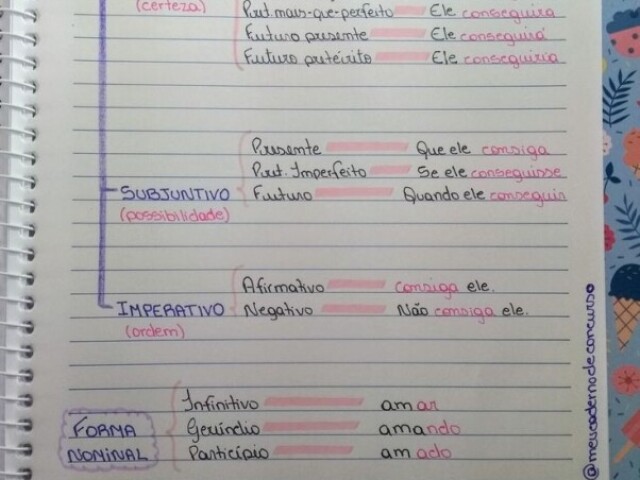 (certeza)
Pret. mais-que-perfeito Ele conseguira
Futuro presente Ele conseguirá
Futuro pretérito Ele conseguiria
Presente Que ele consiga
Pret. Imperfeito Se ele conseguisse
SUBJUNTIVO Futuro Quando ele conseguir
(possibilidade)
Afirmativo consiga ele.
IMPERATIVO Negativo Não consiga ele.
(ordem)
Infinitivo amar
FORMA Gerúndio amando
NOMINAL Particípio amado
@meucadernodeconcurso